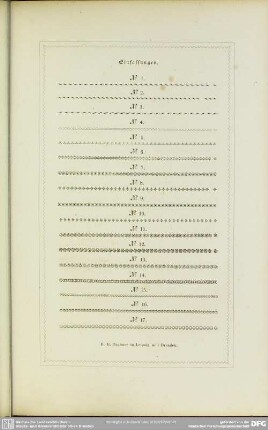 Einfassungen.
№ 1.
№ 2.
№ 3.
№ 4.
№ 5.
№ 6.
№ 7.
№ 8.
№ 9.
№ 10.
№ 11.
№ 12.
№ 13.
№ 14.
№ 15.
№ 16.
№ 17.
B. G. Teubner in Leipzig und Dresden.
DFG